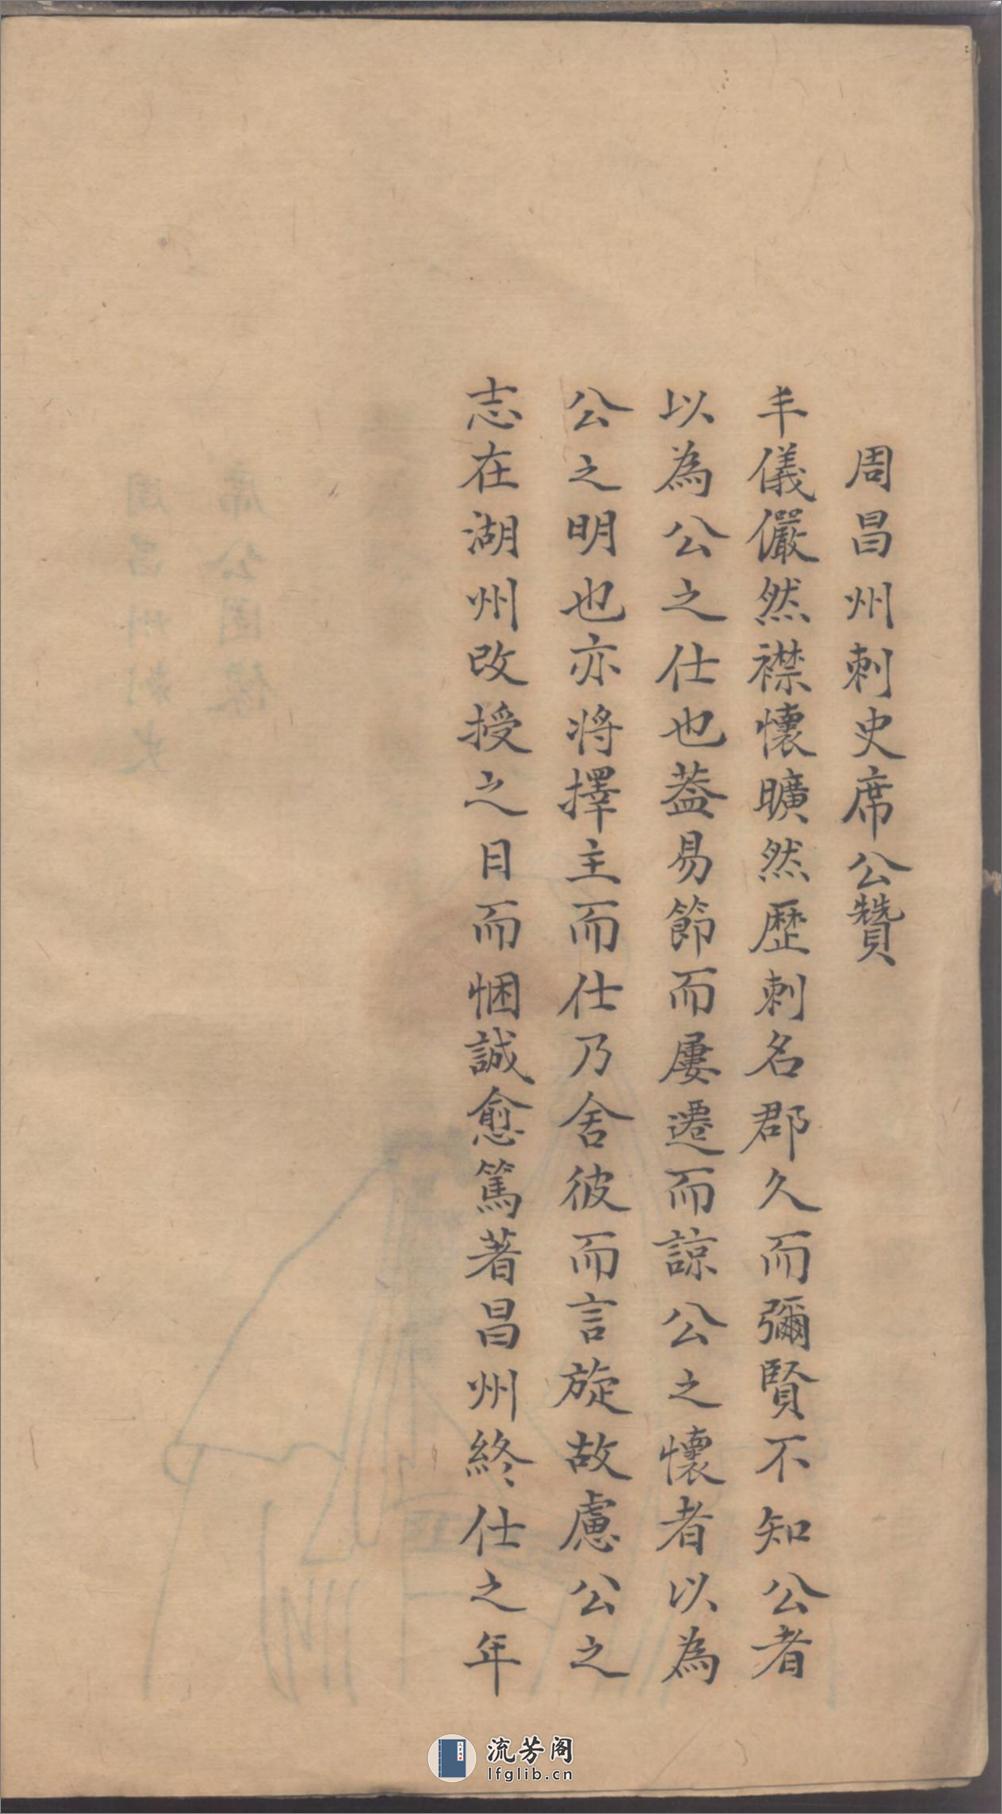 周昌州刺史席公贊
丰儀儼然襟懷曠然歷刺名郡久而彌賢不知公者
以為公之仕也葢易節而屢遷而諒公之懷者以為
公之明也亦將擇主而仕乃舍彼而言旋故慮公之
志在湖州改授之日而悃誠愈篤著昌州終仕之年
席公圖像
周昌州刺史
流芳阁
lfglib.cn